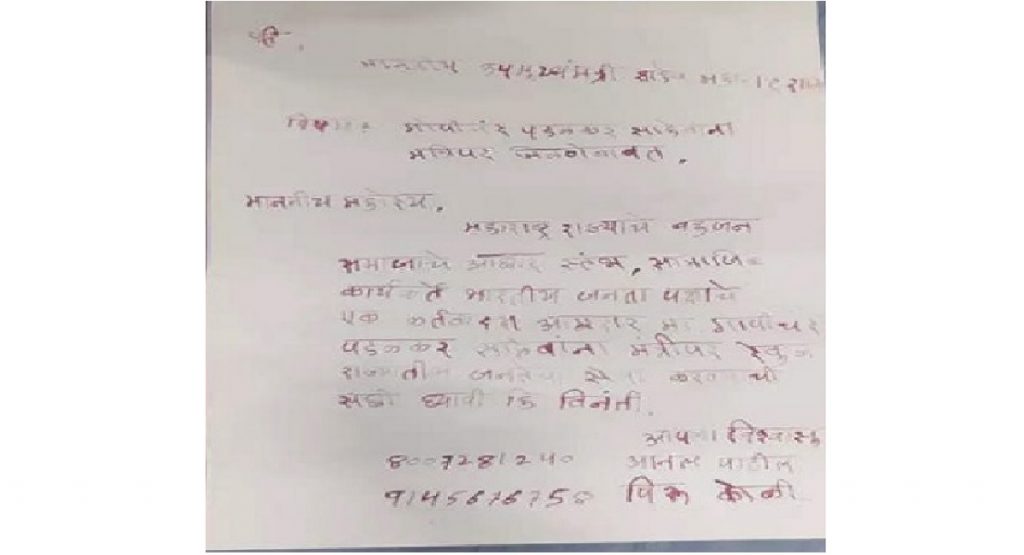 प्रति,
माननीय उपमुख्यमंत्री साहेब महाराष्ट्र राज्य
विषय: गोपीचंद पडळकर साहेबांना
मंत्रिपद मिळणेबाबत.
माननीय महोदय,
महाराष्ट्र राज्याचे बहुजन
समाजाचे आधार स्तंभ, सामाजिक
कार्यकर्ते भारतीय जनता पक्षाचे
एक कर्तव्यदक्ष आमदार मा गोपीचंद
पडळकर साहेबांना मंत्रीपद देवून
राज्यातील जनतेची सेवा करण्याची
संधी द्यावी हि विनंती.
आपला विश्वासू
8007281240 पाटील
9145676758 कोळी